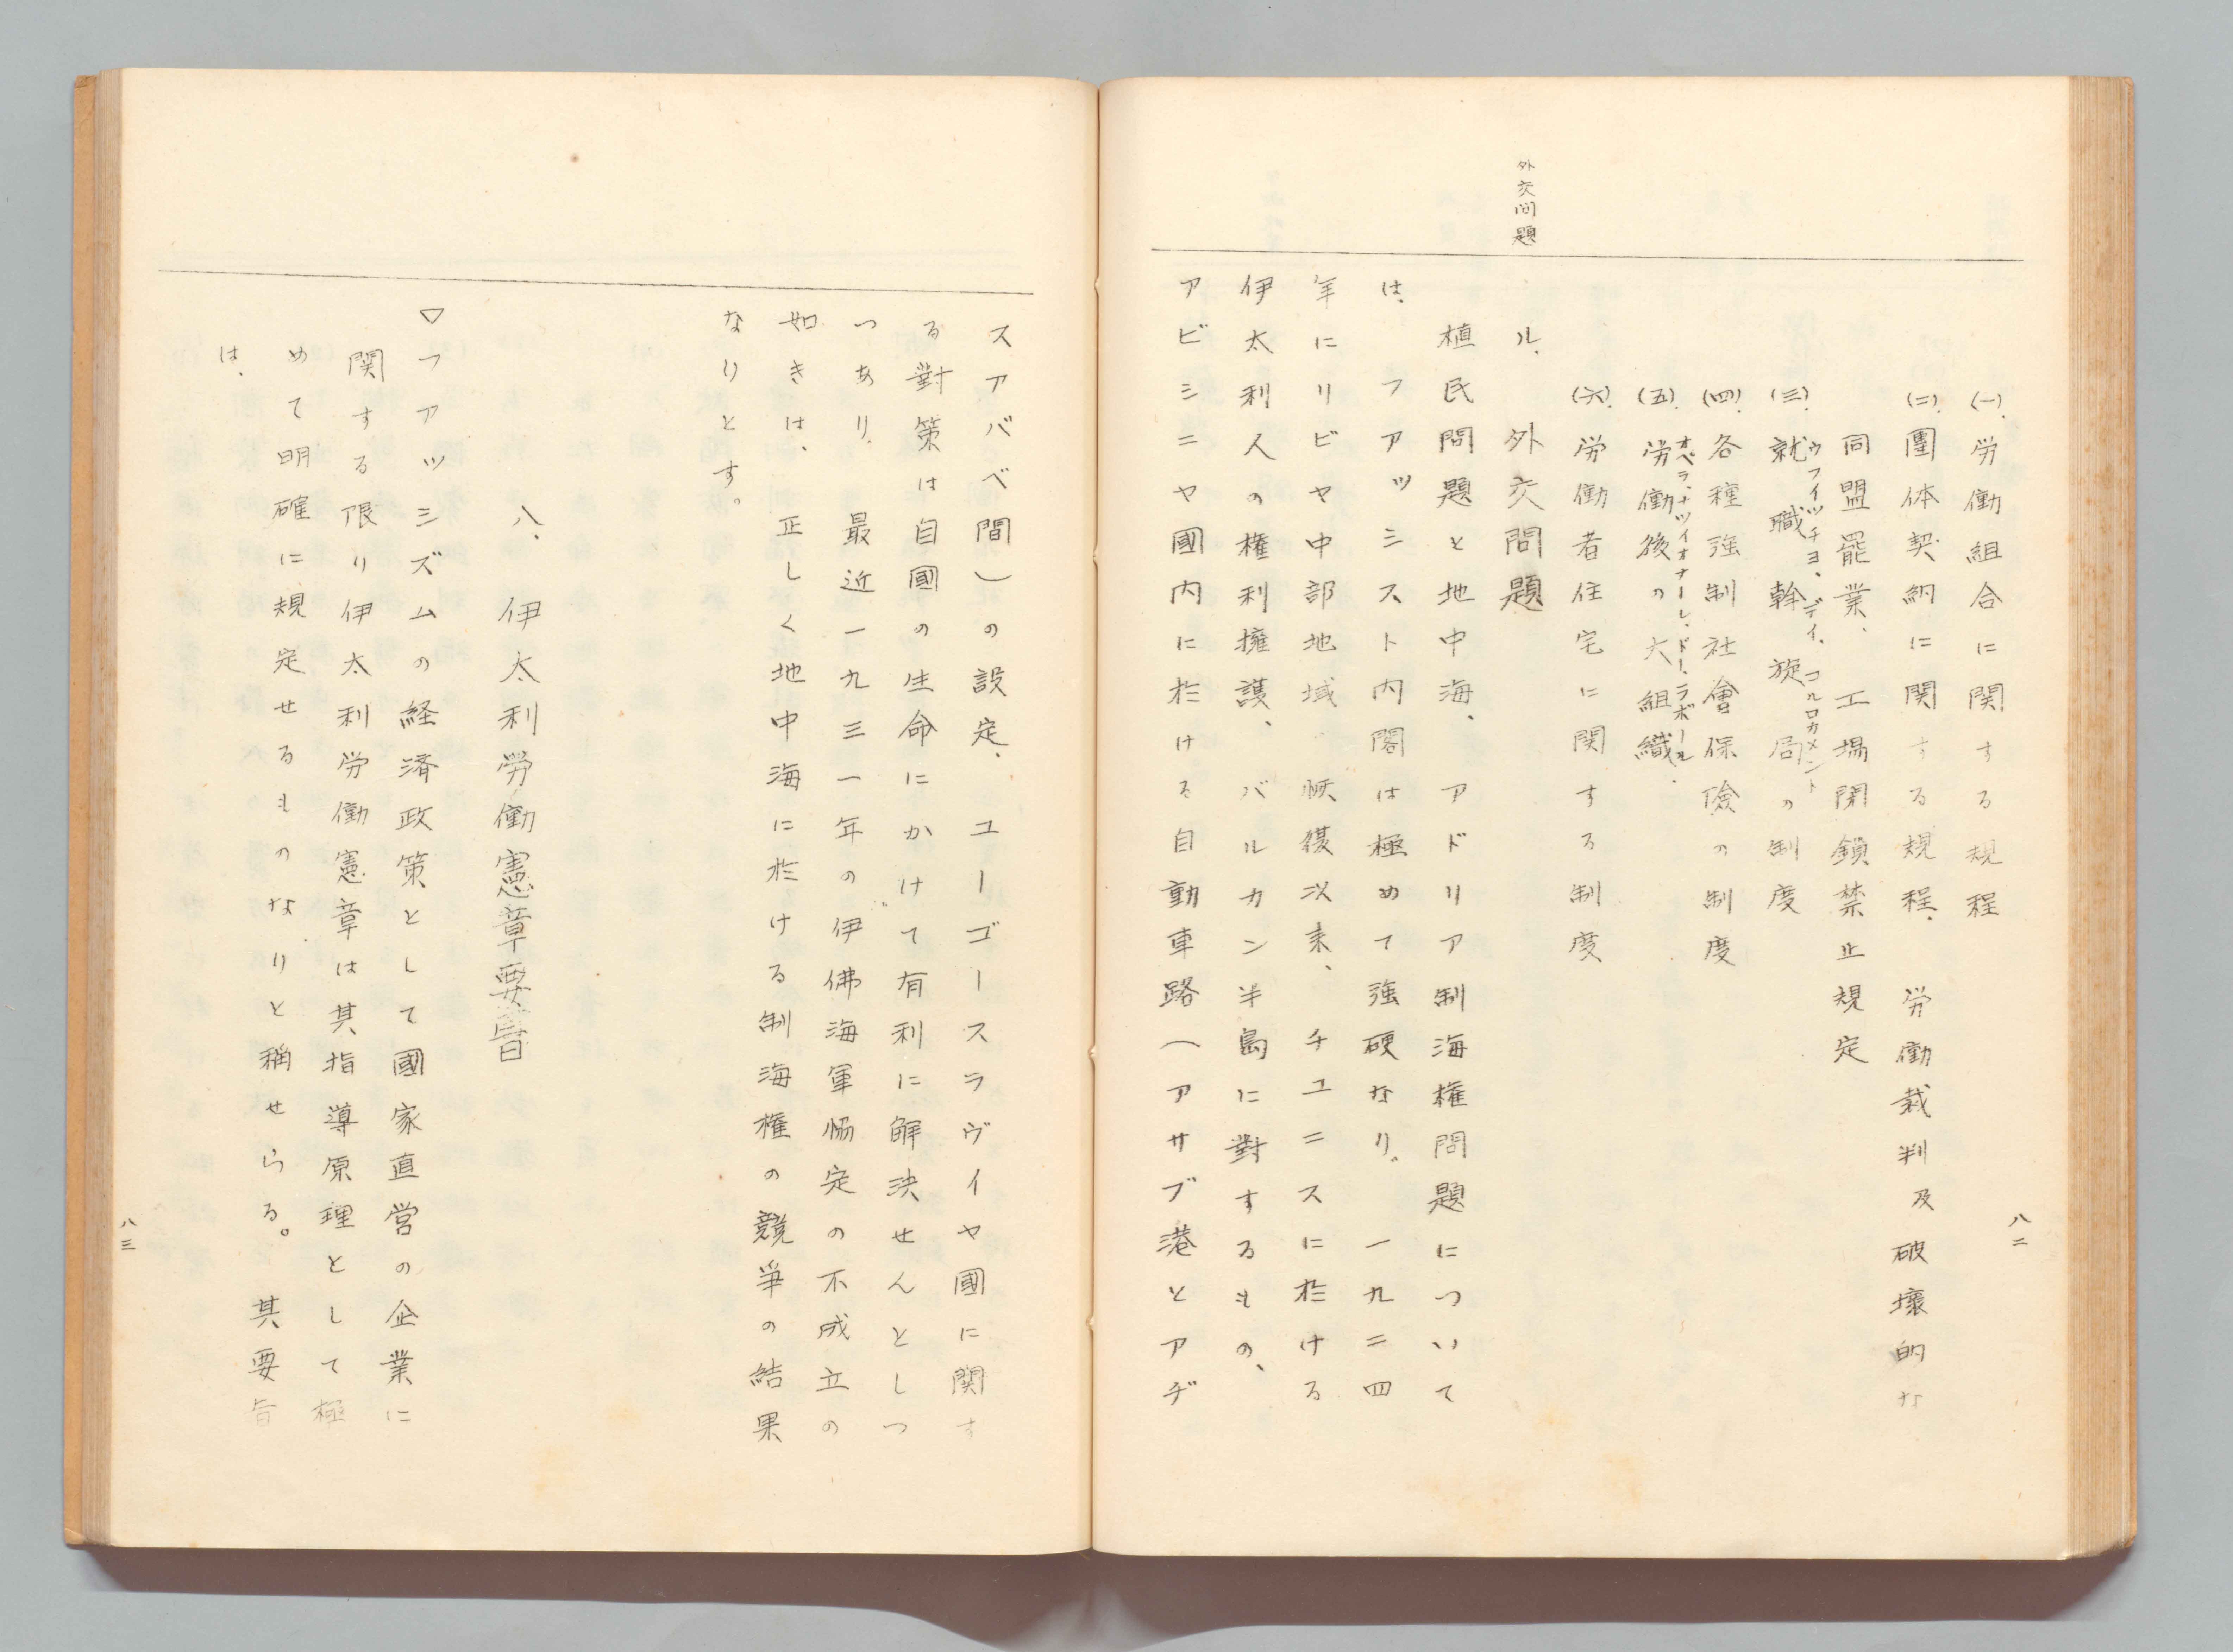 八二
(一)、労働組合に関する規程
(二)、團体契約に関する規程、労働裁判及破壊的な
同盟罷業、工場閉鎖禁止規定
(三)、就職幹旋局の制度
ウフイツチヨ、デイ、コルロカメント
(四)、各種強制社會保険の制度
(五)、労働後の大組織、
オペラ、ナツイオナーレ、ドーラボール
(六)、労働者住宅に関する制度
外交问題
ル、外交問題
植民問題と地中海、アドリア制海権問題について
は、フアツシスト内閣は極めて強硬なり。一九二四
年にリビヤ中部地域恢復以来、チユニスに於ける
伊太利人の権利擁護、バルカン半島に對するもの、
アビシニヤ國内に於ける自動車路(アサブ港とアヂ
スアバベ間)の設定、ユーゴースラヴイヤ國に関す
る對策は自國の生命にかけて有利に解決せんとしつ
つあり、最近一九三一年の伊佛海軍恊定の不成立の
如きは、正しく地中海に於ける制海権の競爭の結果
なりとす。
八、伊太利労働憲章要旨
▽フアツシズムの経済政策として國家直営の企業に
関する限り伊太利労働憲章は其指導原理として極
めて明確に規定せるものなりと稱せらる。其要旨
は、
八三